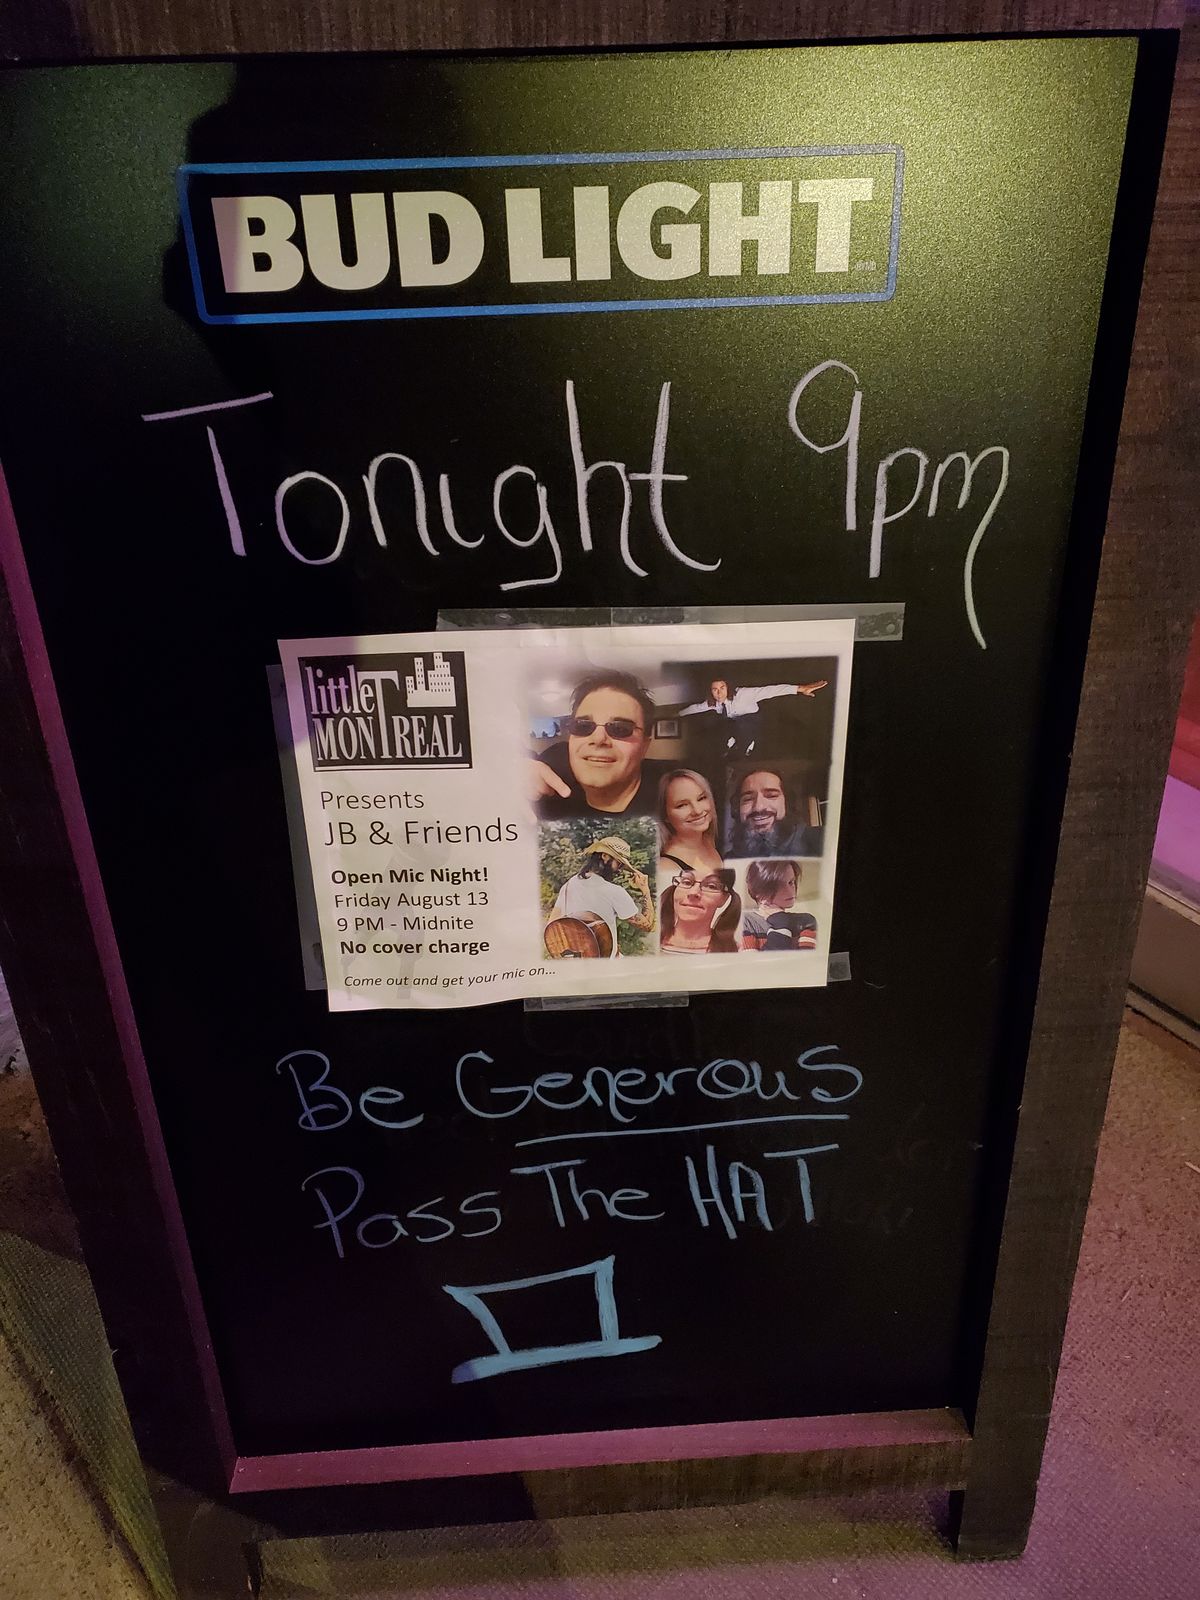 BUD LIGHT
Tonight 9pm
little
MONTREAL
Presents
JB & Friends
Open Mic Night!
Friday August 13
9 PM - Midnite
No cover charge
Come out and get your mic on...
Be Generous
Pass The HAT